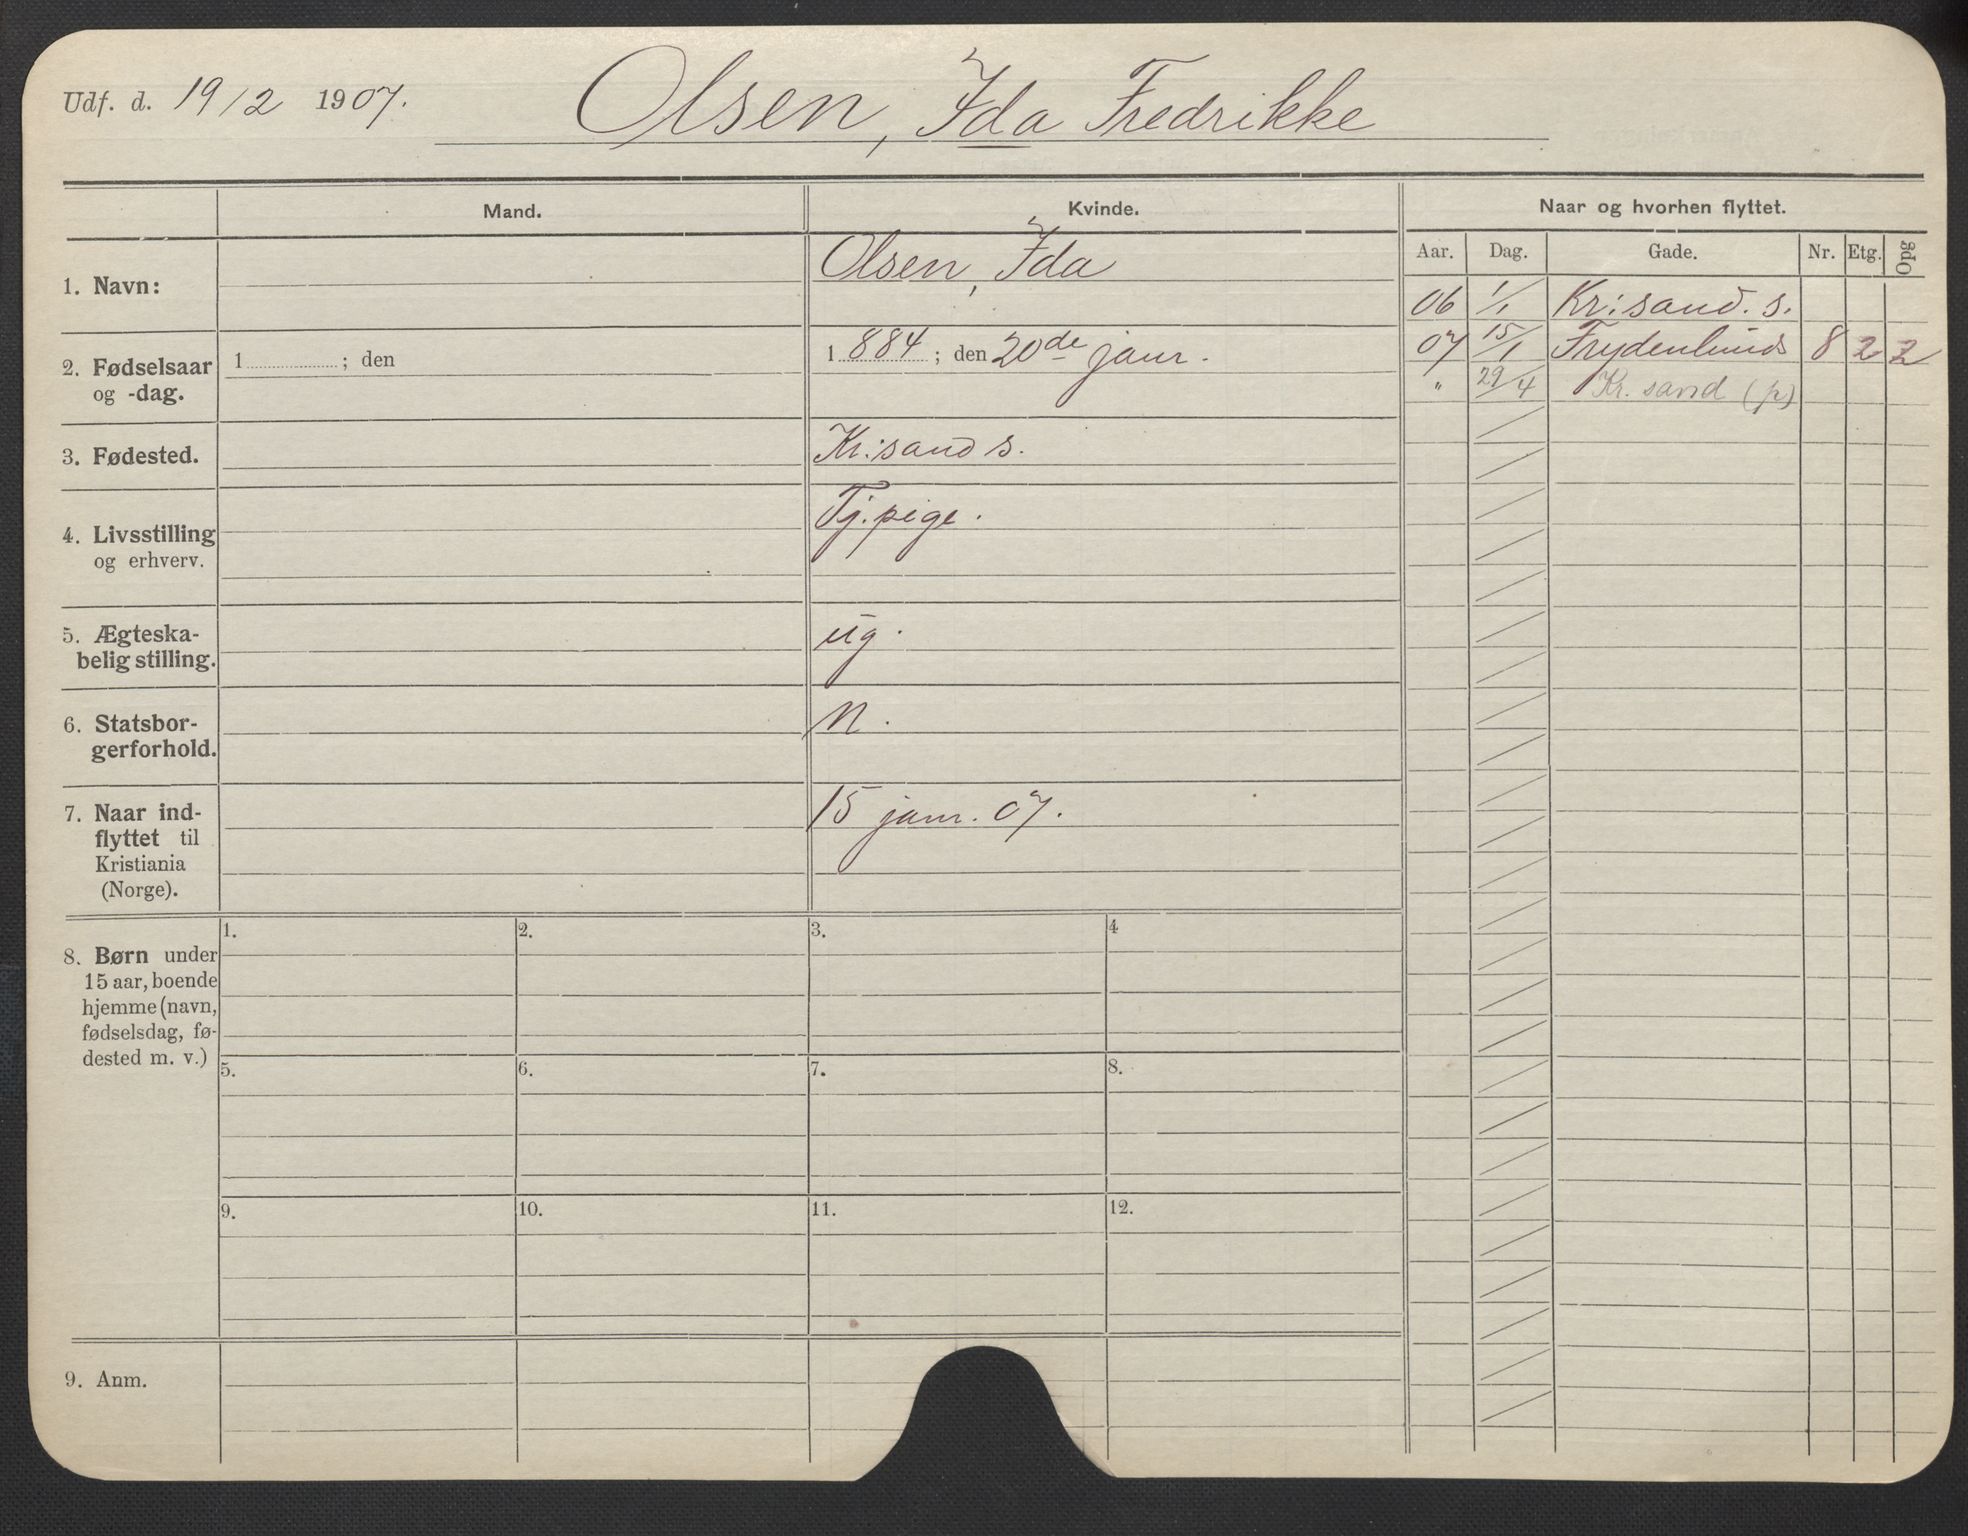 Udf. d. 19/2 1907. Olsen, Ida Fredrikke
Mand. Kvinde. Naar og hvorhen flyttet.
Aar. Dag. Gade. Nr. Etg. Opg
1. Navn: Olsen, Ida
06 1/1 Kr:sand. s.
07 15/1 Frydenlunds 8 2 2
" 29/4 Kr. sand (p)
2. Fødselsaar og -dag. 1 ; den 1 884 ; den 20de janr.
3. Fødested. Kr:sand s.
4. Livsstilling og erhverv. Tj.pige.
5. Ægteska-
belig stilling. ug.
6. Statsbor-
gerforhold. N.
7. Naar ind-
flyttet til
Kristiania
(Norge). 15 janr. 07.
8. Børn under
15 aar, boende
hjemme (navn,
fødselsdag, fø-
dested m. v.)
1. 2. 3. 4
5. 6. 7. 8.
9. 10. 11. 12.
9. Anm.